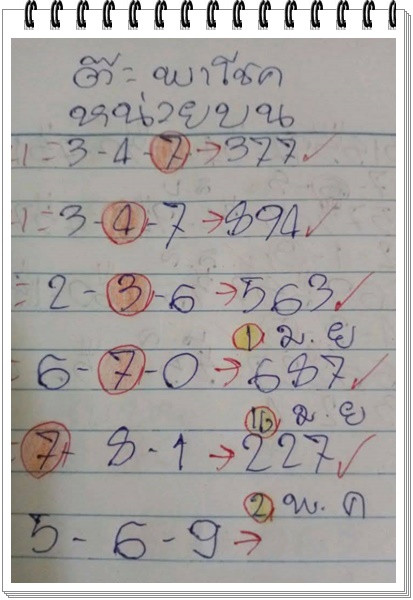 จ๊ะ พาโชค
หน่วยบน
1 = 3-4-7 → 377 ✓
1 = 3-4-7 → 894 ✓
= 2-3-6 → 563 ✓
1 มิ.ย
= 6-7-0 → 687 ✓
16 มิ.ย
= 7-8-1 → 227 ✓
2 พ.ค
5-6-9 →